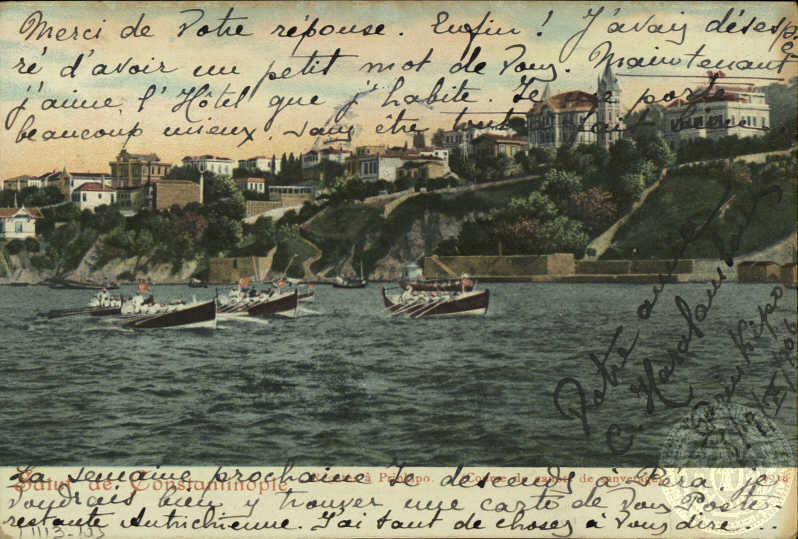 Merci de Votre réponse. Enfin! J'avais désespé
ré d'avoir un petit mot de Vous. Maintenant
j'aime l'Hôtel que j'habite. Je me porte
beaucoup mieux, sans être tout à fait
Votre amie
C. Haralambos
Prinkipo
1906
Salut de Constantinople.
Régates à Prinkipo. Course de canots de sauvetage
La semaine prochaine je descends à Péra. je
voudrais bien y trouver une carte de Vous Poste-
restante Autrichienne. J'ai tant de choses à Vous dire...